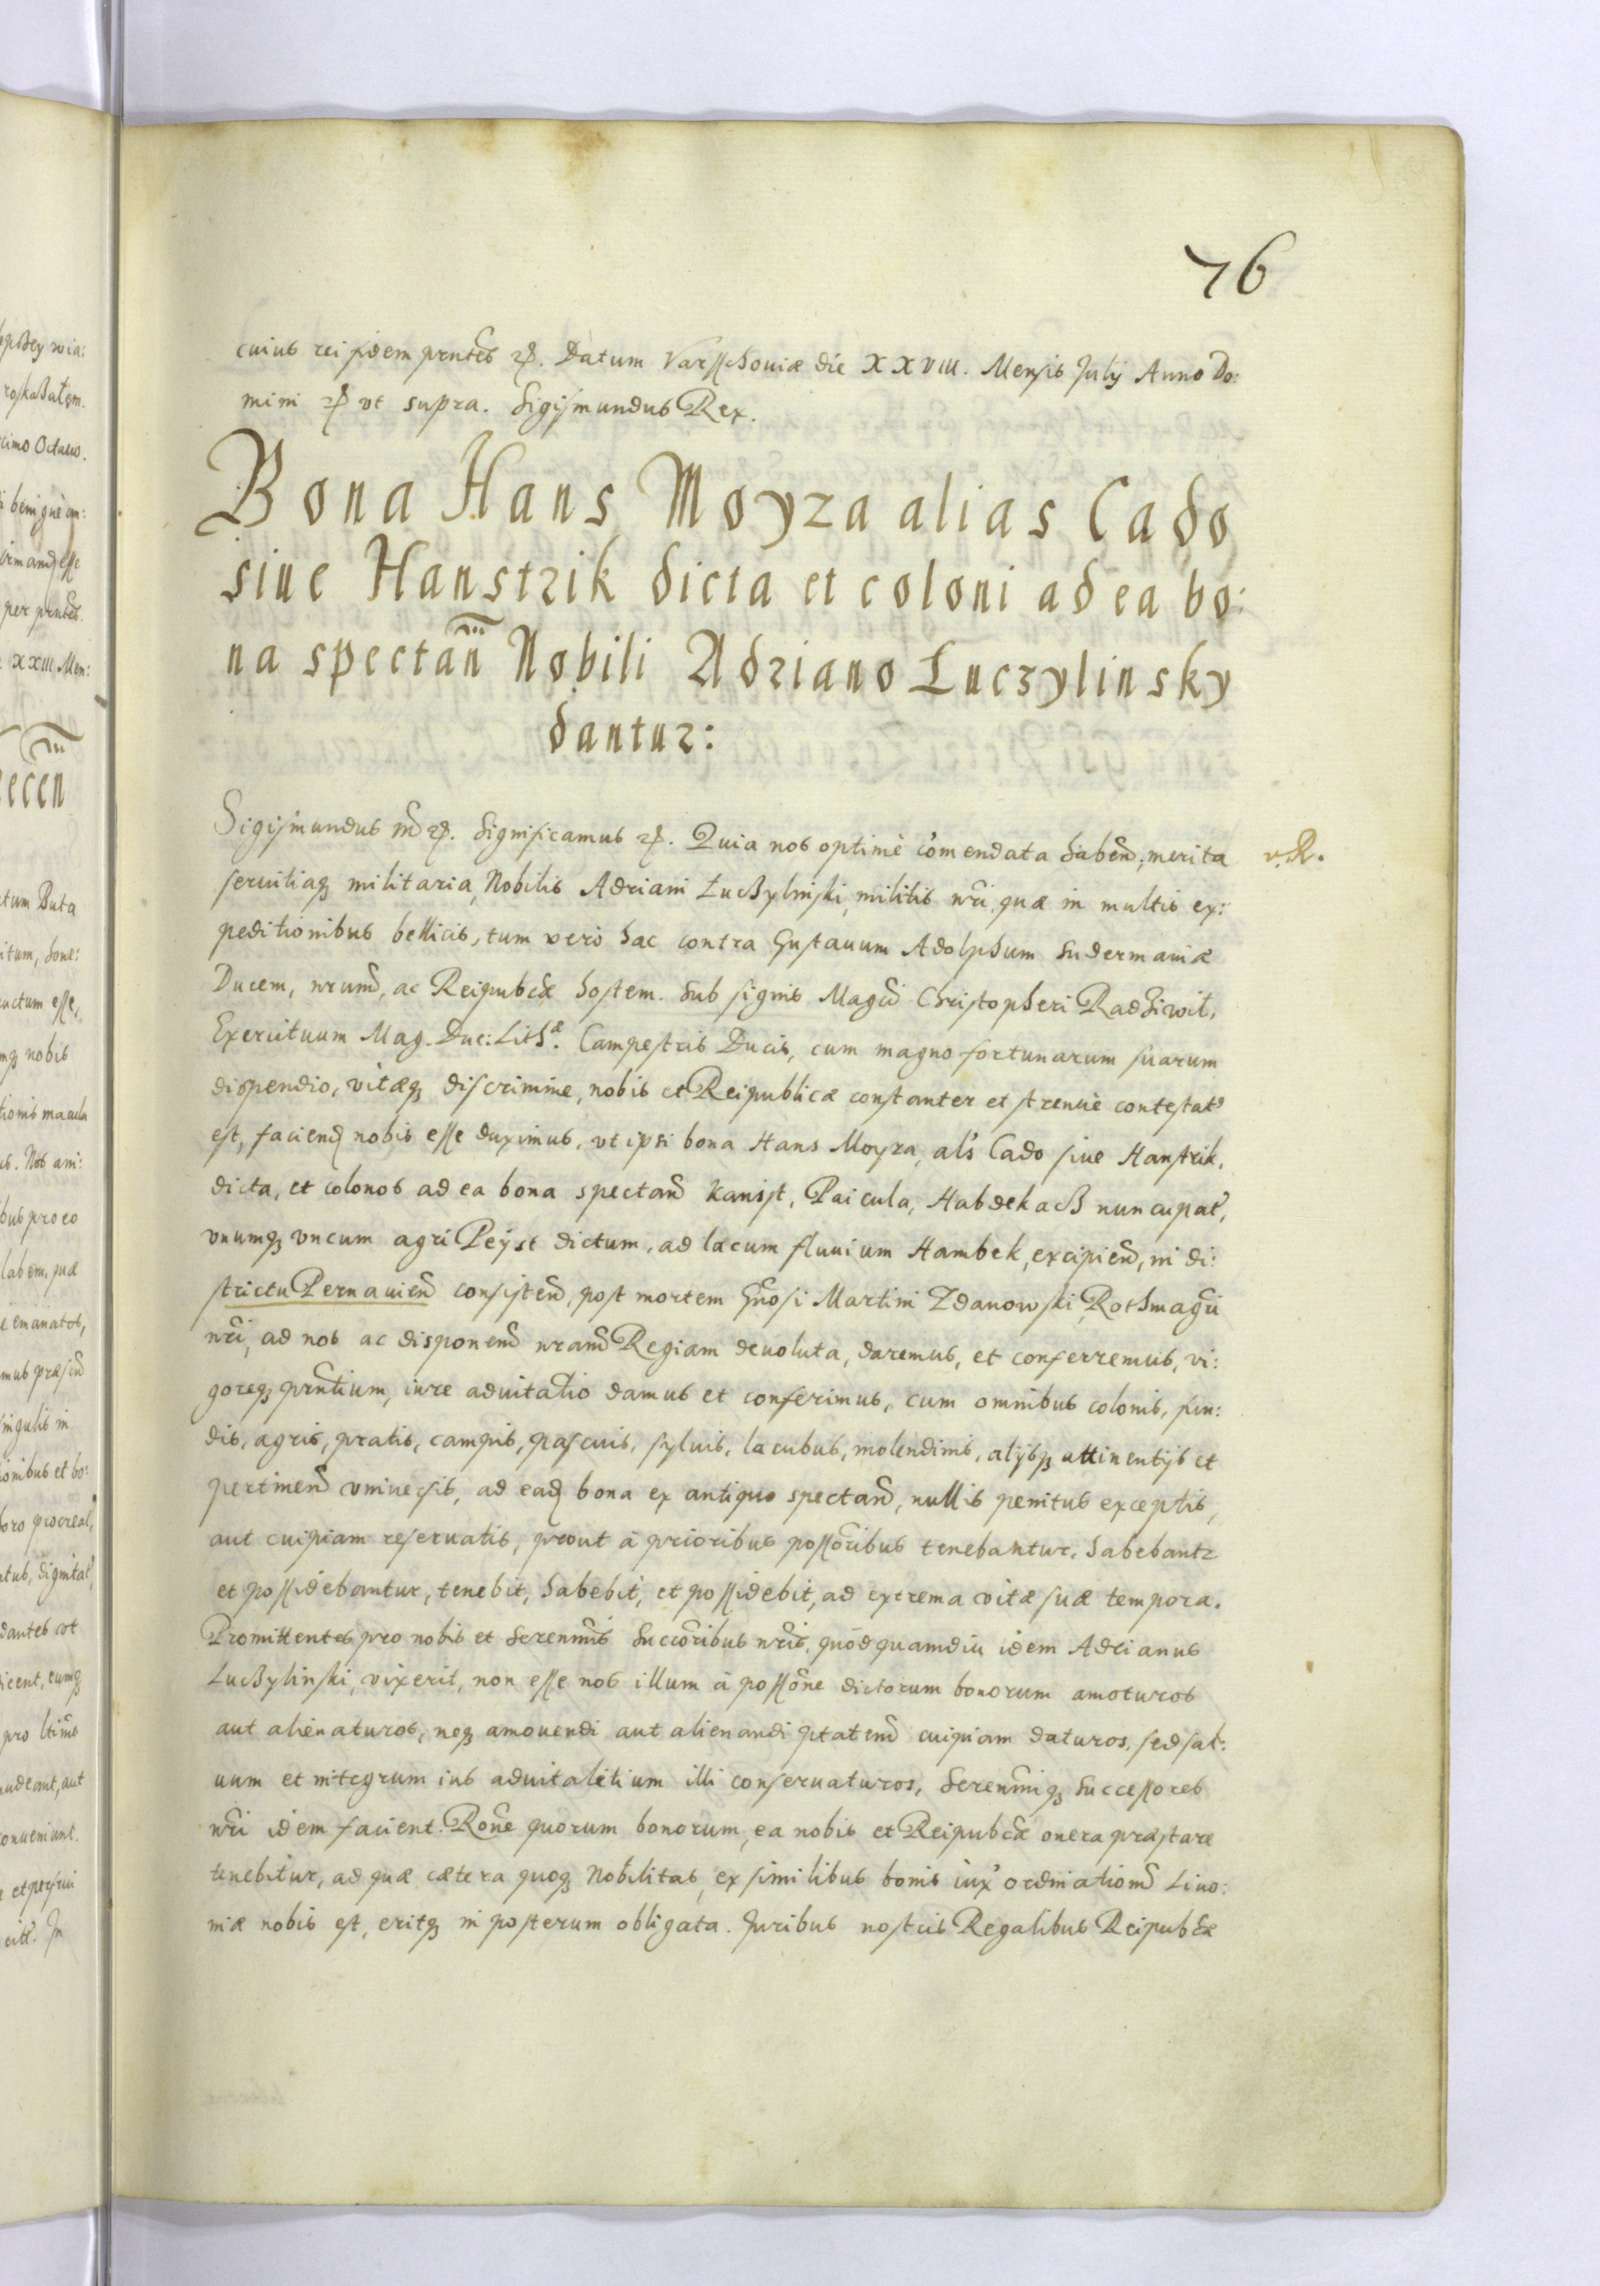 76
cuius rei fidem prntes etc. Datum Varsschouiæ die XXVIII. Mensis Julij Anno Do:
mini etc ut supra. Sigismundus Rex.
Bona Hans Moyza alias Cado
siue Hanstrik dicta et coloni ad ea bo:
na spectan̄ Nobili Adriano Luczylinsky
dantur:
Sigismundus etc. Significamus etc. Quia nos optimè com̃endata haben̄, merita
v. R.
seruitiaq3 militaria, Nobilis Adriani Lußylinski, militis nr̃i, quæ in multis ex:
peditionibus bellicis, tum verò hac contra Gustauum Adolphum Sudermaniæ
Ducem, nrum̃, ac Reipubcæ hostem. Sub signis Magc̃i Christopheri Radziwil,
Exercituum Mag. Duc: Lithæ. Campestris Ducis, cum magno fortunarum suarum
dispendio, vitæq3 discrimine, nobis et Reipublicæ constanter et strenuè contestatꝰ
est, faciend̃ nobis esse duximus, vt ipsi bona Hans Moyza, als Cado siue Hanstrik,
dicta, et colonos ad ea bona spectan̄ Kanist, Paicula, Habdekaß nuncupat̃,
vnumq3 vncum agri Peyst dictum, ad lacum fluuium Hambek, excipien̄, in di:
strictu Pernauien̄ consisten̄, post mortem Gñosi Martini Zdanowski, Rothmagr̃i
nr̃i, ad nos ac disponem̃ nram̃ Regiam deuoluta, daremus, et conferremus, vi:
goreq3 prñtium, iure aduitalio damus et conferimus, cum omnibus colonis, fun:
dis, agris, pratis, campis, pascuis, syluis, lacubus, molendinis, alijsq3 attinentijs et
pertinen̄ vniuersis, ad ead̃ bona ex antiquo spectan̄, nullis penitus exceptis,
aut cuipiam reseruatis, prout à prioribus possoribus tenebantur, habebantr
et possidebantur, tenebit, habebit, et possidebit, ad extrema vitæ suæ tempora.
Promittentes pro nobis et Serenmis Succoribus nr̃is, quòd quamdiu idem Adrianus
Lußylinski, vixerit, non esse nos illum à possõne dictorum bonorum amoturos
aut alienaturos, neq3 amouendi aut alienandi ptatem̃ cuiquam daturos, sed sal:
uum et integrum ius aduitalitium illi conseruaturos, Serenmiq3 Successores
nr̃i idem facient. Rõne quorum bonorum, ea nobis et Reipubcæ onera præstare
tenebitur, ad quæ cætera quoq3 Nobilitas, ex similibus bonis iux̃ ordinationẽ Liuo:
niæ nobis est, eritq3 in posterum obligata. Juribus nostris Regalibus Reipubcæ